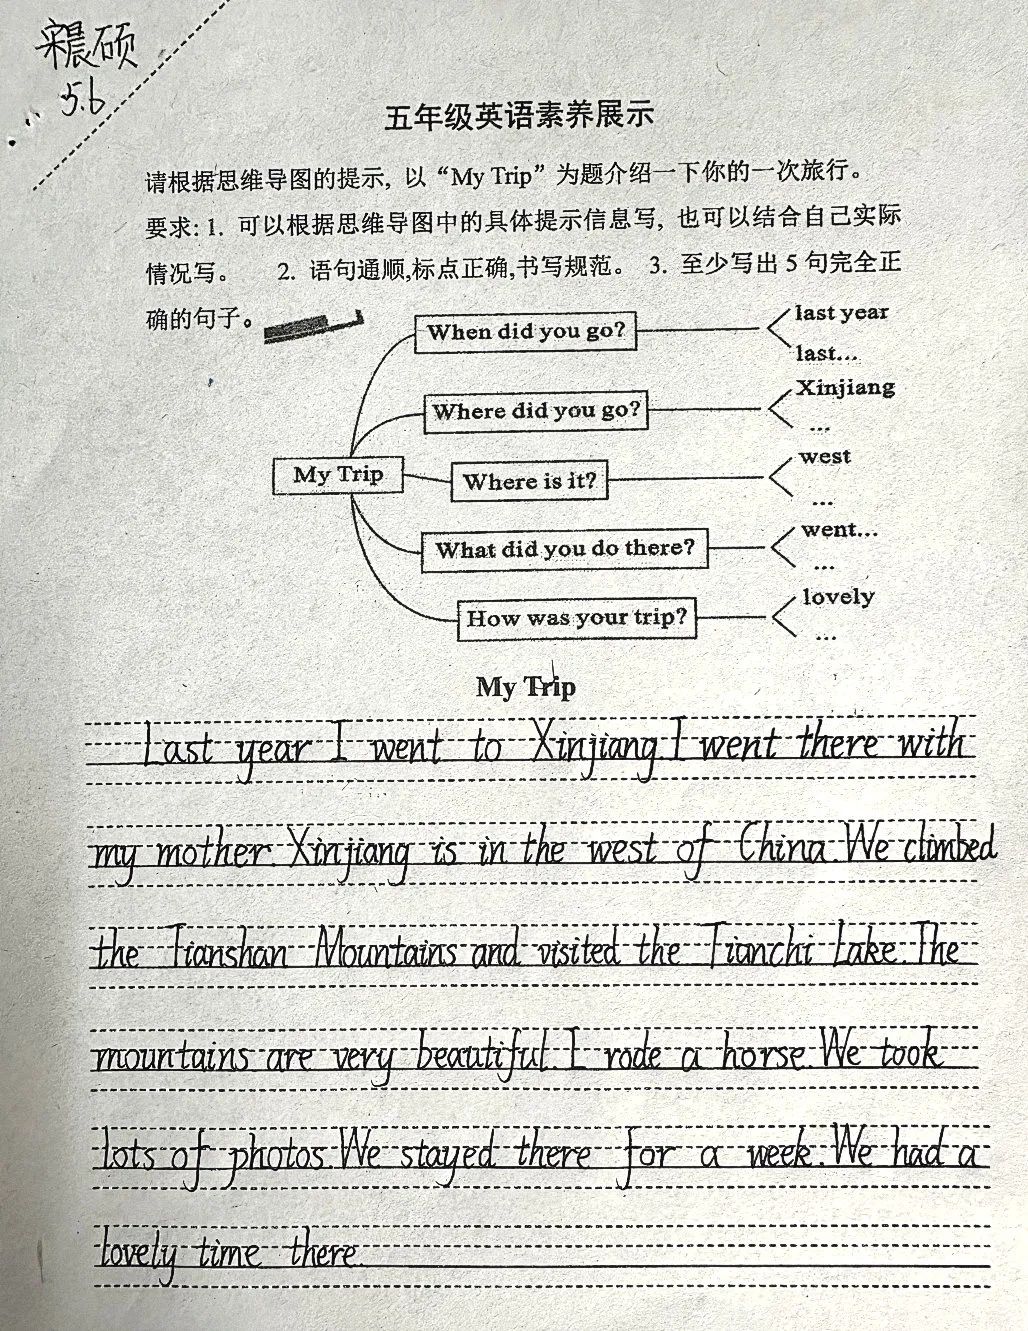 宋晨硕
5.6
五年级英语素养展示
请根据思维导图的提示, 以“My Trip”为题介绍一下你的一次旅行。
要求: 1. 可以根据思维导图中的具体提示信息写, 也可以结合自己实际
情况写。 2. 语句通顺,标点正确,书写规范。 3. 至少写出 5 句完全正
确的句子。
When did you go?
last year
last...
Where did you go?
Xinjiang
...
My Trip
Where is it?
west
...
What did you do there?
went...
...
How was your trip?
lovely
...
My Trip
Last year I went to Xinjiang. I went there with
my mother. Xinjiang is in the west of China. We climbed
the Tianshan Mountains and visited the Tianchi Lake. The
mountains are very beautiful. I rode a horse. We took
lots of photos. We stayed there for a week. We had a
lovely time there.